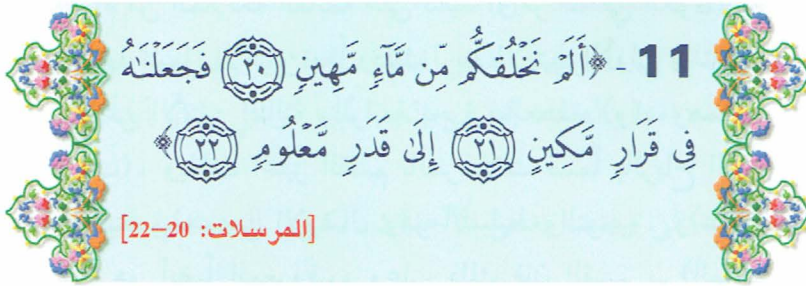 11 - ﴿أَلَمْ نَخْلُقكُّم مِّن مَّآءٍ مَّهِينٍ ٢٠ فَجَعَلْنَٰهُ
فِى قَرَارٍ مَّكِينٍ ٢١ إِلَىٰ قَدَرٍ مَّعْلُومٍ ٢٢﴾
[المرسلات: 20–22]